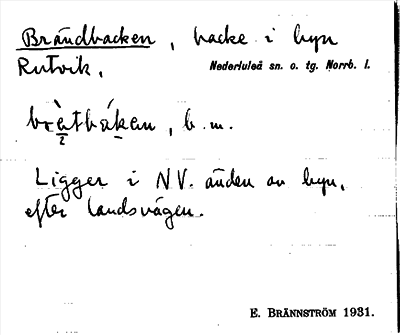 Brändbacken, backe i byn
Rutvik.
Nederluleå sn. o. tg. Norrb. l.
b. m.
Ligger i NV. änden av byn,
efter landsvägen.
E. BRÄNNSTRÖM 1931.